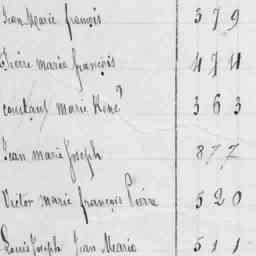 Jean Marie françois 379
Pierre marie françois 474
constant marie René 363
Jean marie Joseph 877
Victor marie françois Pierre 520
Louis Joseph Jean Marie 511